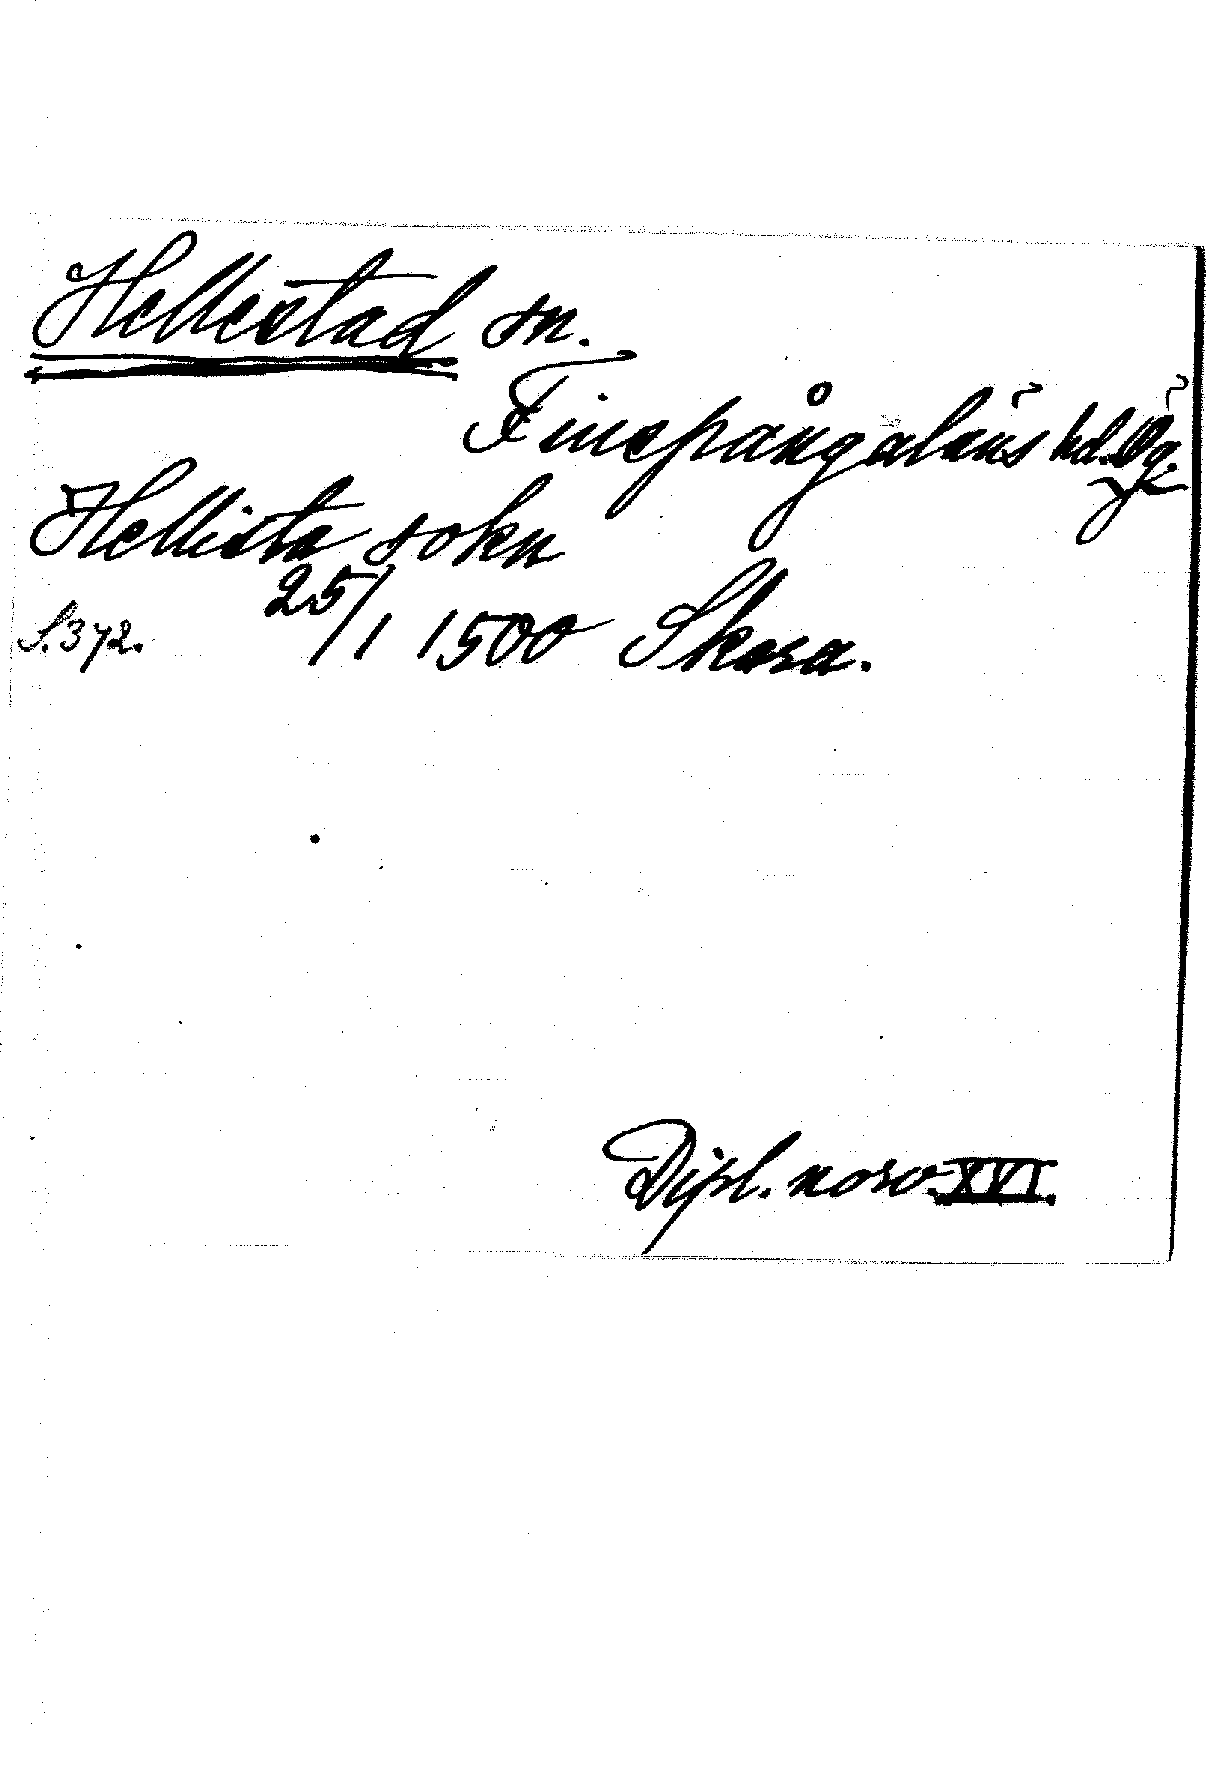 Hellestad sn.
Finspångaläns hd. Ög.
Hellista sokn
S. 372. 25/1 1500 Skara.
Dipl. norv. XVI.